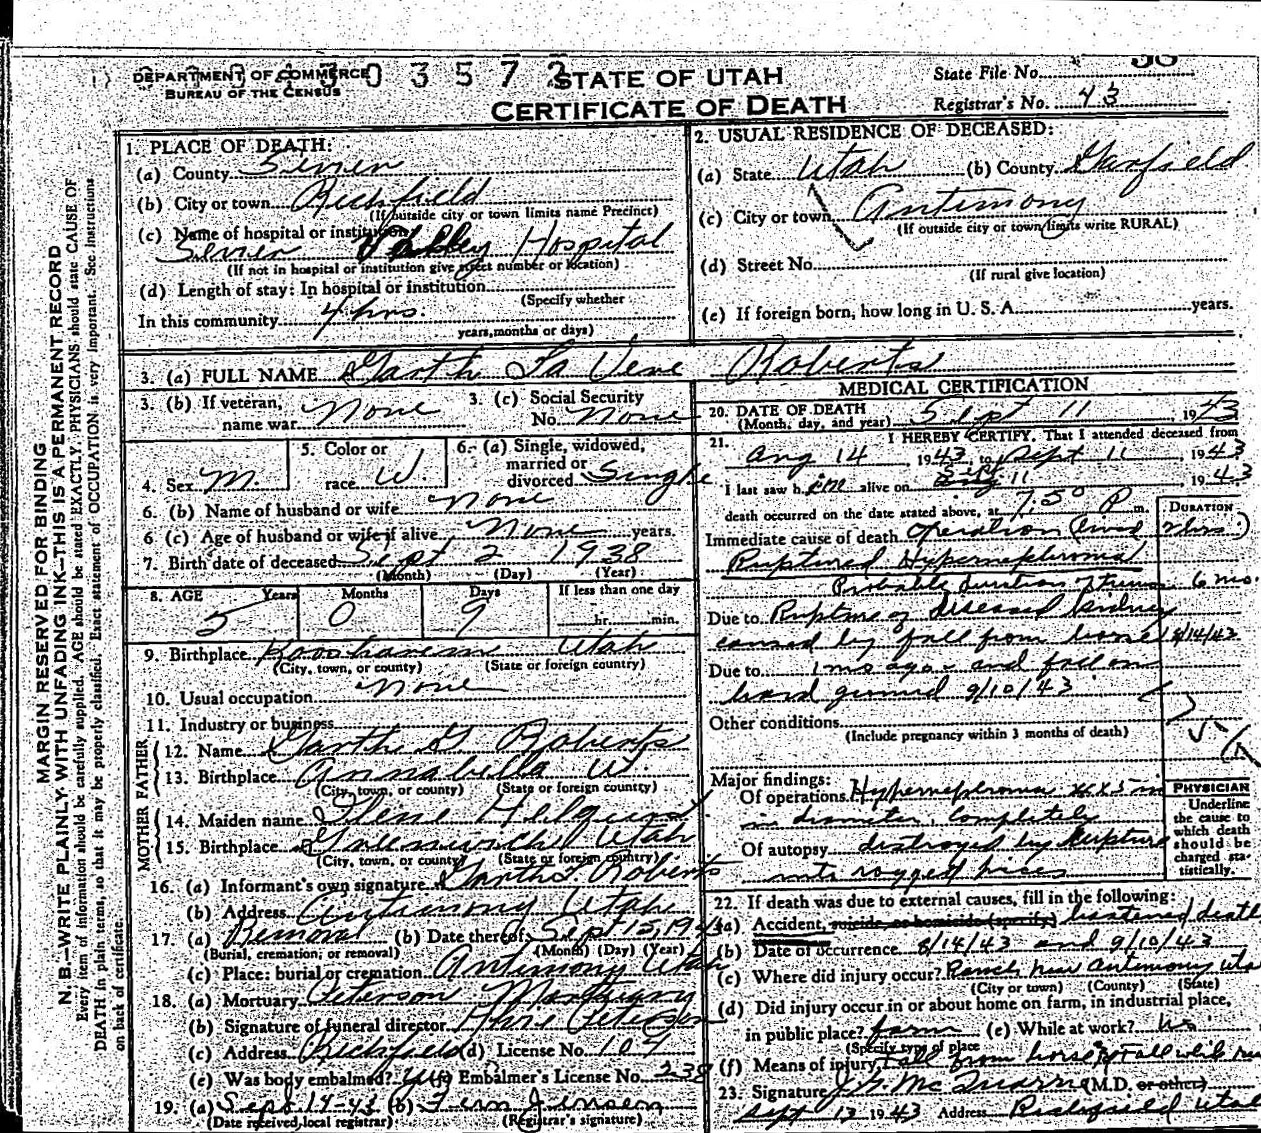 DEPARTMENT OF COMMERCE
BUREAU OF THE CENSUS
3 0 3 5 7 2
STATE OF UTAH
CERTIFICATE OF DEATH
State File No.
Registrar's No. 43
MARGIN RESERVED FOR BINDING
N. B.—WRITE PLAINLY WITH UNFADING INK—THIS IS A PERMANENT RECORD
Every item of information should be carefully supplied. AGE should be stated EXACTLY. PHYSICIANS should state CAUSE OF
DEATH in plain terms, so that it may be properly classified. Exact statement of OCCUPATION is very important. See instructions
on back of certificate.
1. PLACE OF DEATH:
(a) County Sevier
(b) City or town Richfield
(If outside city or town limits name Precinct)
(c) Name of hospital or institution
Sevier Valley Hospital
(If not in hospital or institution give street number or location)
(d) Length of stay: In hospital or institution
(Specify whether
In this community 4 hrs.
years, months or days)
2. USUAL RESIDENCE OF DECEASED:
(a) State Utah (b) County Garfield
(c) City or town Antimony
(If outside city or town limits write RURAL)
(d) Street No.
(If rural give location)
(e) If foreign born, how long in U. S. A. years.
3. (a) FULL NAME Garth La Vene Roberts
3. (b) If veteran, name war None
3. (c) Social Security No. None
4. Sex M.
5. Color or race W.
6. (a) Single, widowed, married or divorced Single
6. (b) Name of husband or wife None
6 (c) Age of husband or wife if alive None years.
7. Birth date of deceased Sept 2 1938
(Month) (Day) (Year)
8. AGE Years Months Days If less than one day
5 0 9 hr. min.
9. Birthplace Koosharem Utah
(City, town, or county) (State or foreign country)
10. Usual occupation None
11. Industry or business
FATHER
12. Name Garth D. Roberts
13. Birthplace Annabella Ut.
(City, town, or county) (State or foreign country)
MOTHER
14. Maiden name Ilene
15. Birthplace Greenwich Utah
(City, town, or county) (State or foreign country)
16. (a) Informant's own signature Garth D. Roberts
(b) Address Antimony Utah
17. (a) Removal (b) Date thereof Sept 15, 1943
(Burial, cremation, or removal) (Month) (Day) (Year)
(c) Place: burial or cremation Antimony Utah
18. (a) Mortuary Peterson Mortuary
(b) Signature of funeral director Peterson
(c) Address Richfield (d) License No. 109
(e) Was body embalmed? yes (f) Embalmer's License No. 238
19. (a) Sept. 14-43 (b) Fern Jensen
(Date received local registrar) (Registrar's signature)
MEDICAL CERTIFICATION
20. DATE OF DEATH
(Month, day, and year) Sept 11, 1943
21. I HEREBY CERTIFY, That I attended deceased from
Aug 14, 1943, to Sept 11, 1943
I last saw him alive on Sept 11, 1943
death occurred on the date stated above, at 7:50 P m.
DURATION
Immediate cause of death Operation (lived 2 hrs.)
Ruptured Hypernephroma
Probable duration of tumor 6 mo.
Due to Rupture of diseased kidney
caused by fall from horse 8/14/43
Due to 1 mo ago and fall on
hard ground 9/10/43
Other conditions
(Include pregnancy within 3 months of death)
Major findings:
Of operations Hypernephroma
in diameter, completely
Of autopsy destroyed by rupture
into ragged pieces
PHYSICIAN
Underline
the cause to
which death
should be
charged sta-
tistically.
22. If death was due to external causes, fill in the following:
(a) Accident, suicide or homicide (specify) hastened death
(b) Date of occurrence 8/14/43 and 9/10/43
(c) Where did injury occur? Ranch near Antimony Uta
(City or town) (County) (State)
(d) Did injury occur in or about home on farm, in industrial place,
in public place? farm (e) While at work? no
(Specify type of place
(f) Means of injury Fall from horse & Fall while
23. Signature J. G. McQuarrie (M.D. or other)
Sept 13 1943 Address Richfield Utah